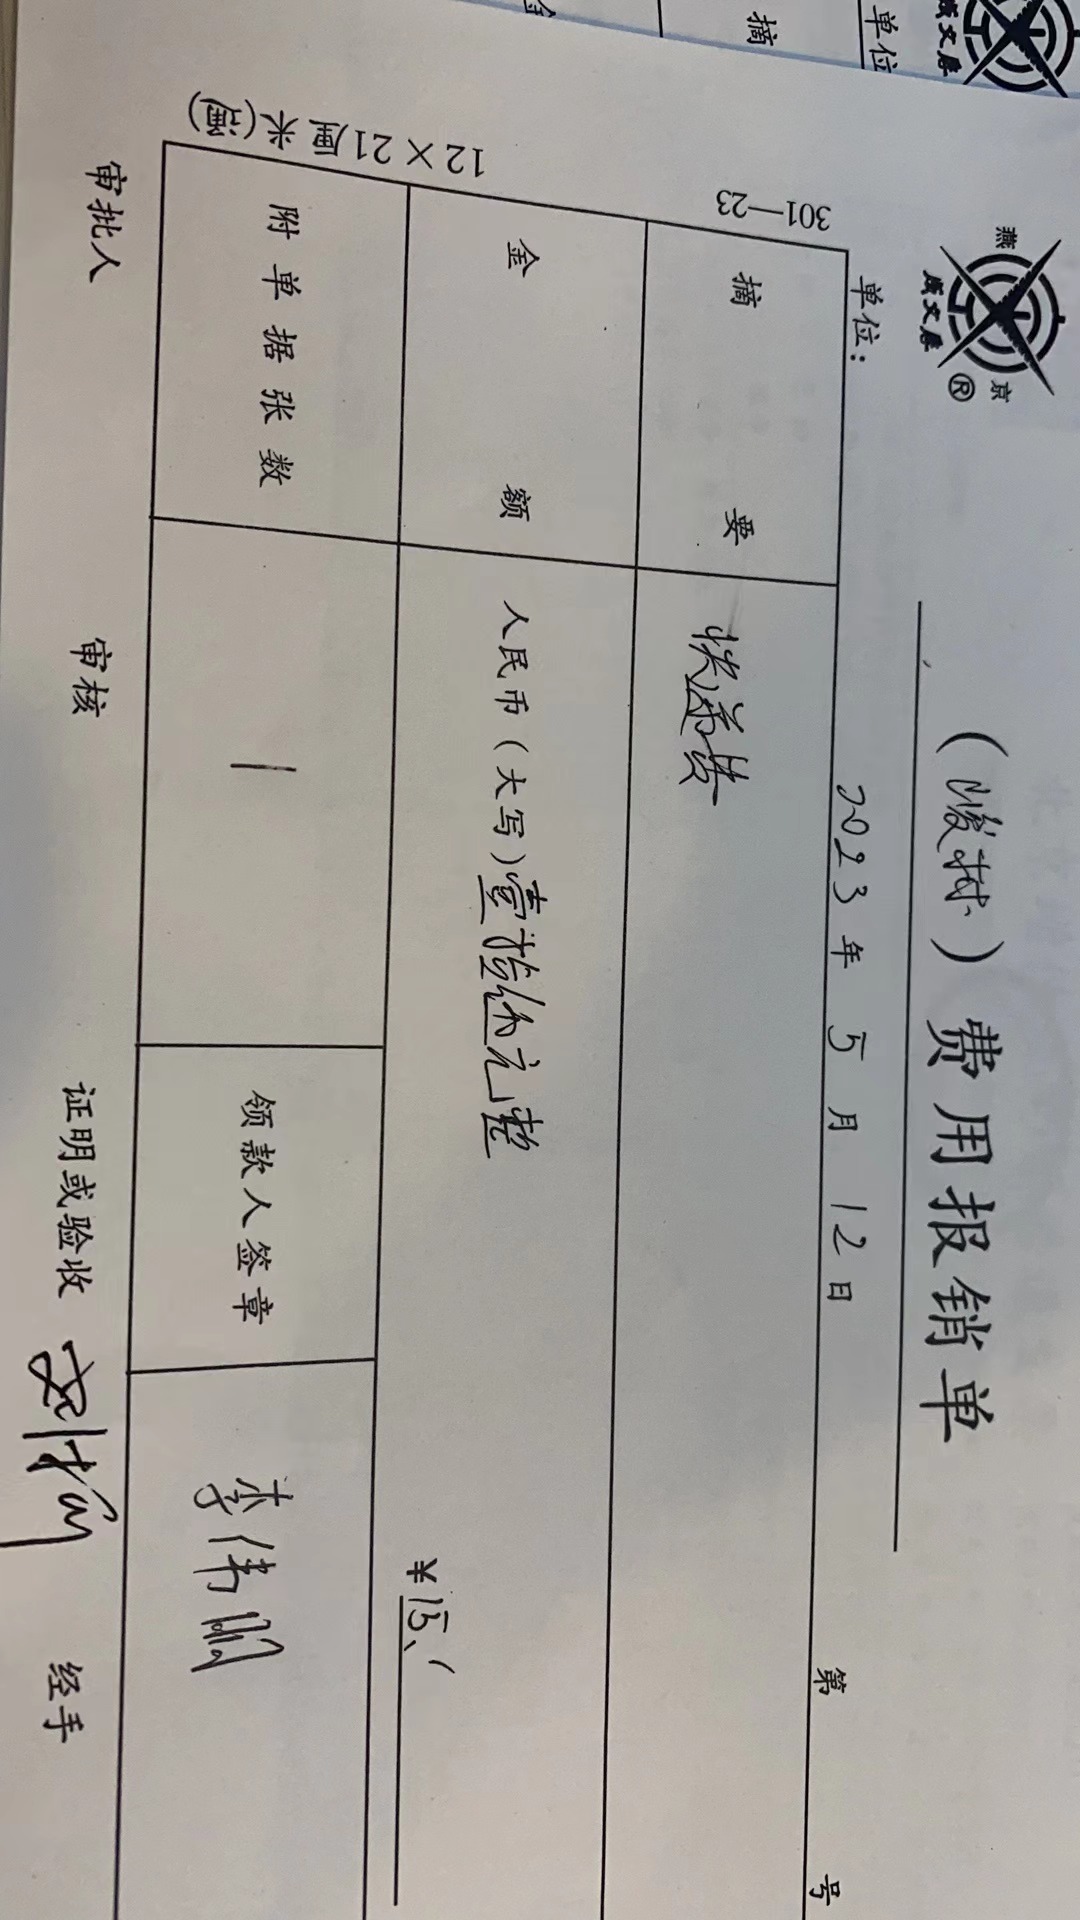 单位
摘
金
燕 京
成文厚 ®
(峻林) 费用报销单
单位: 2023年 5月 12日 第 号
301—23
摘要 快递费
金额 人民币(大写)壹拾伍元整
¥15.
附单据张数 1 领款人签章 李伟鹏
12×21厘米(通)
审批人 审核 证明或验收 经手